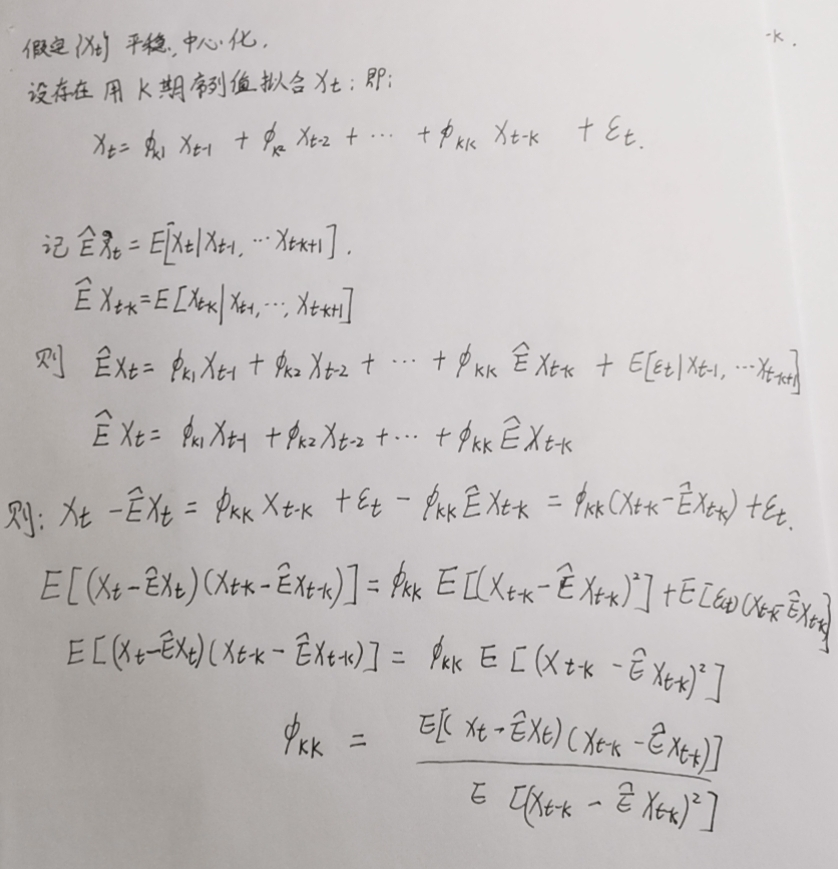 -k.
假定{Xt} 平稳, 中心化.
设存在用 K 期序列值拟合 Xt; 即:
Xt = ϕk1 Xt-1 + ϕk2 Xt-2 + ⋯ + ϕkk Xt-k + εt.
记 ÊXt = E[Xt|Xt-1, ⋯Xt-k+1].
Ê Xt-k = E[Xt-k|Xt-1, ⋯, Xt-k+1]
则 ÊXt = ϕk1 Xt-1 + ϕk2 Xt-2 + ⋯ + ϕkk Ê Xt-k + E[εt|Xt-1, ⋯Xt-k+1]
Ê Xt = ϕk1 Xt-1 + ϕk2 Xt-2 + ⋯ + ϕkk Ê Xt-k
则: Xt - ÊXt = ϕkk Xt-k + εt - ϕkk ÊXt-k = ϕkk (Xt-k - ÊXt-k) + εt.
E[(Xt - ÊXt)(Xt-k - ÊXt-k)] = ϕkk E[(Xt-k - Ê Xt-k)²] + E[εt)(Xt-k - ÊXt-k]
E[(Xt - ÊXt)(Xt-k - ÊXt-k)] = ϕkk E[(Xt-k - Ê Xt-k)²]
ϕkk = E[(Xt - ÊXt)(Xt-k - ÊXt-k)]
E[(Xt-k - Ê Xt-k)²]